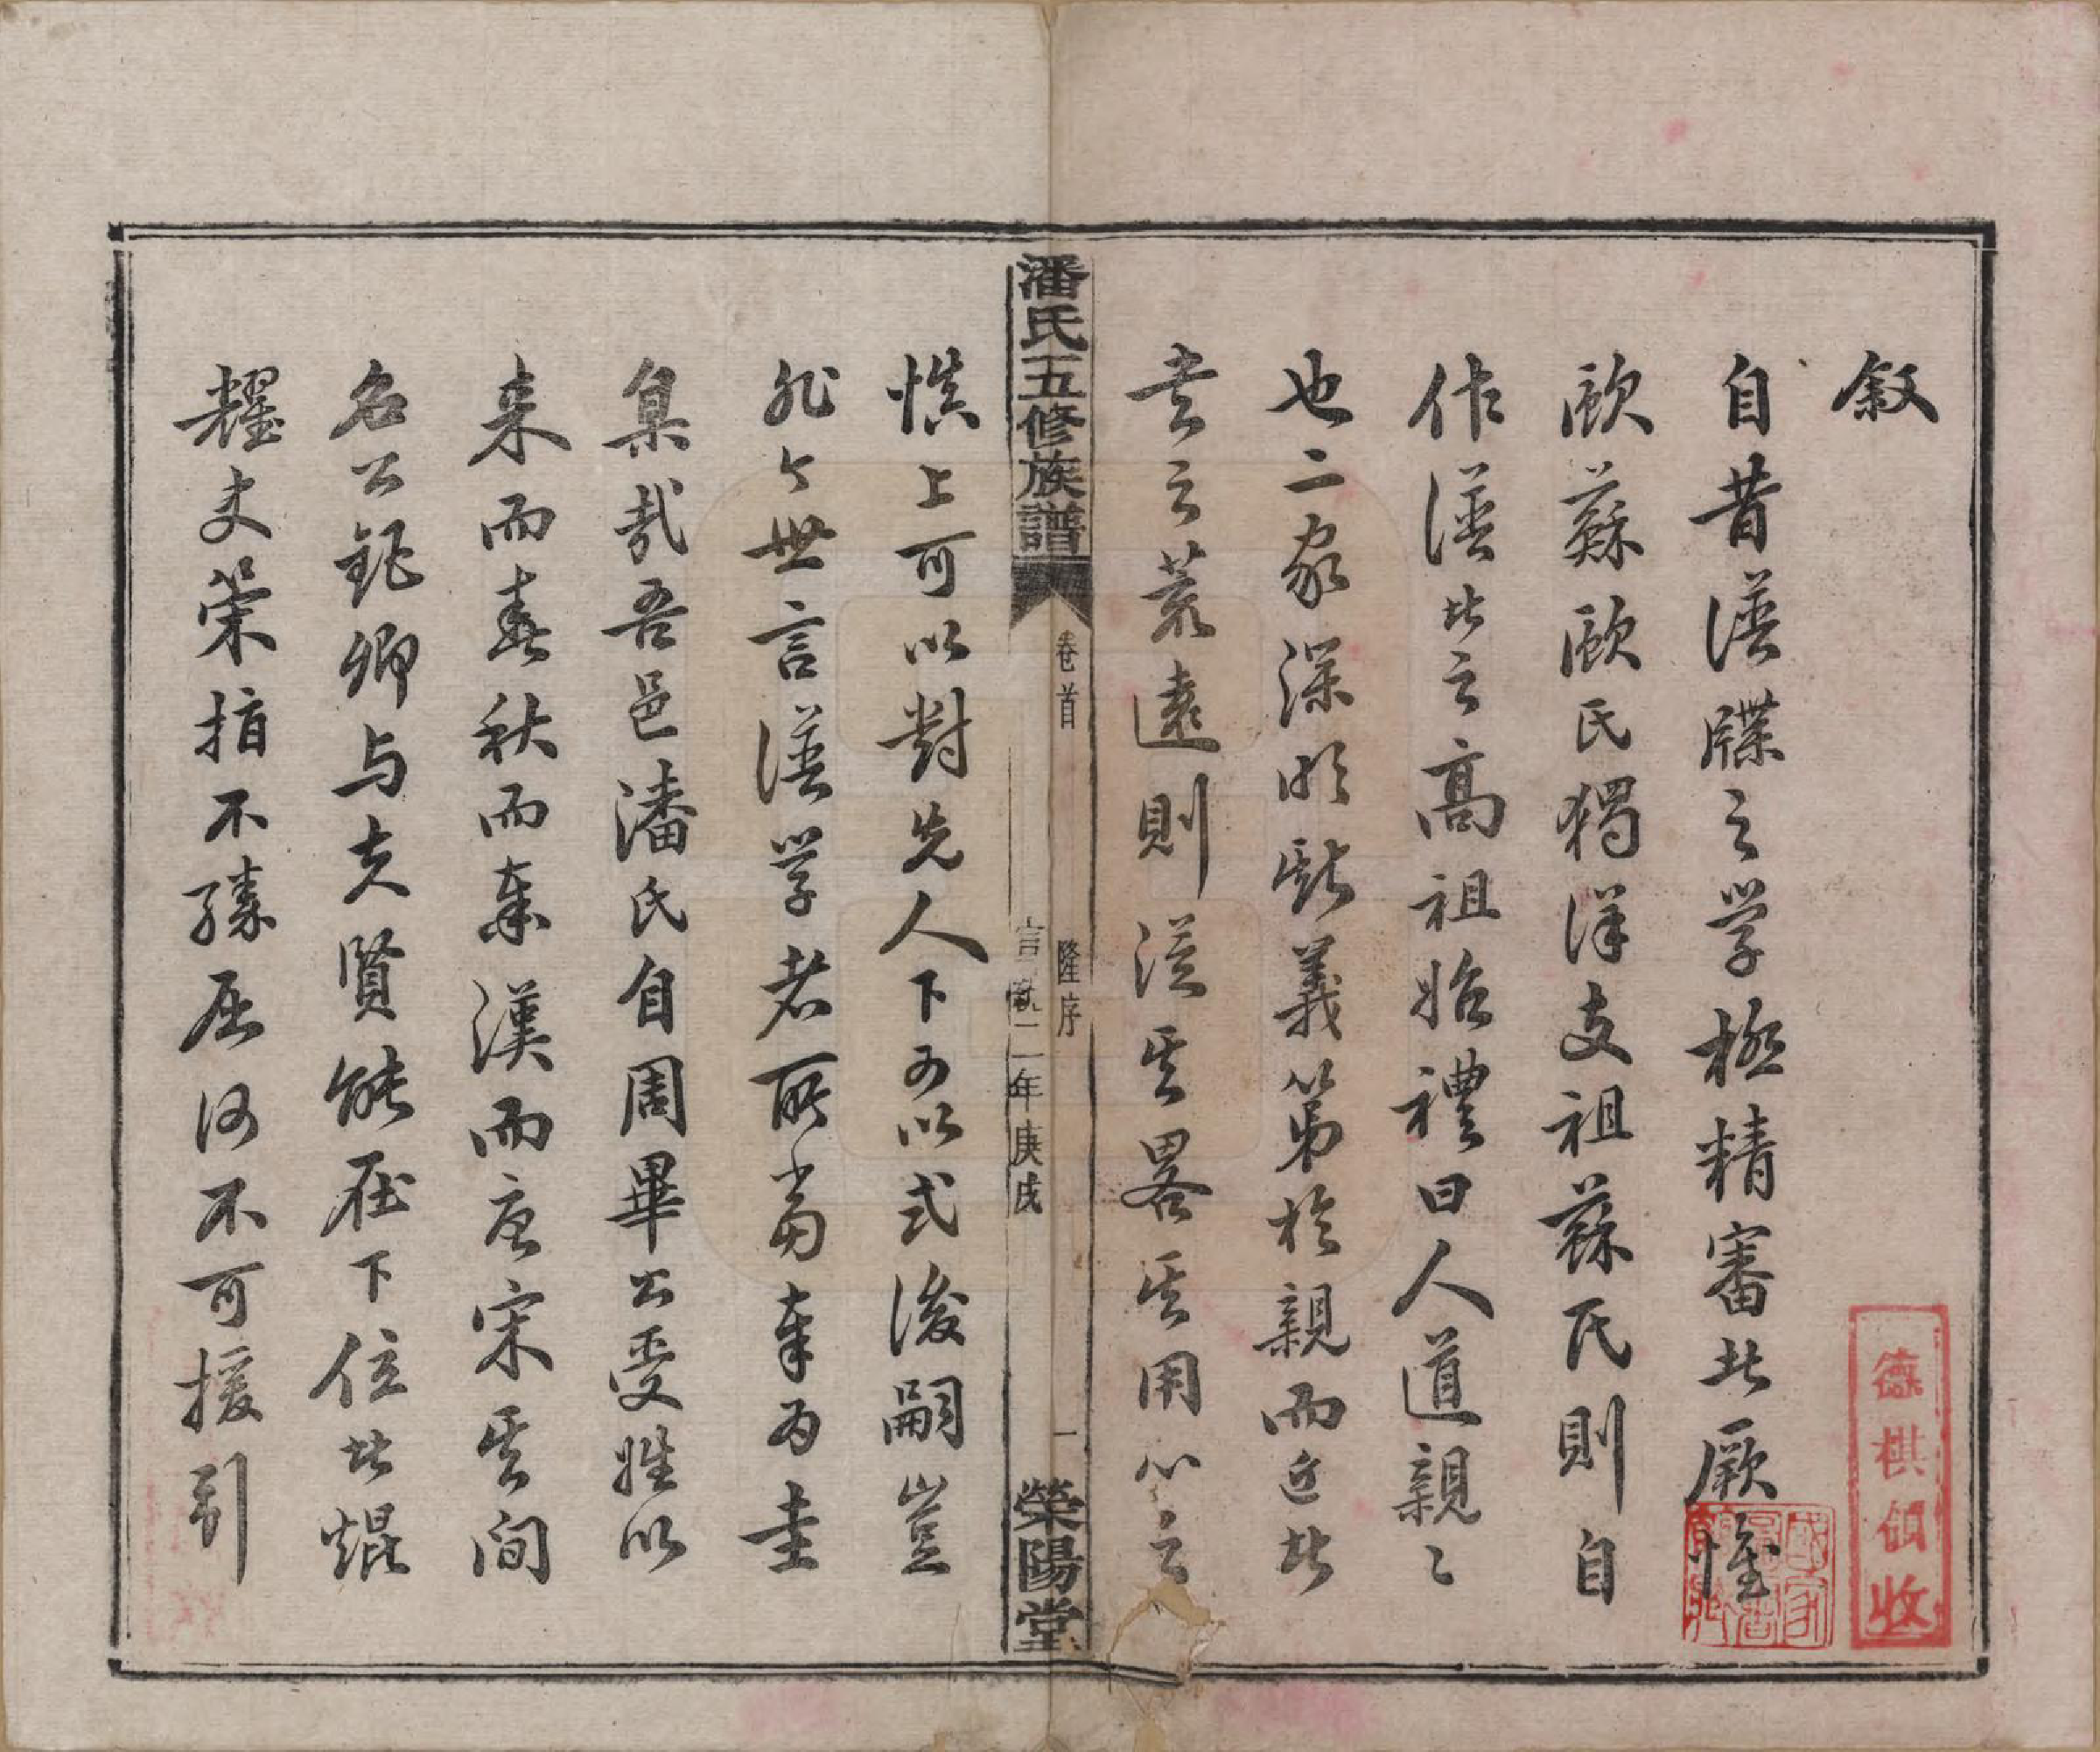 叙
自昔譜牒之学極精審者厥惟
歐蘇歐氏獨詳支祖蘇氏則自
作譜者之高祖始禮曰人道親〻
也二家深明斯義第於親而近者
言之若遠則從其畧其用心之
慎上可以對先人下可以式後嗣豈
非今世言譜学者所當奉为圭
臬哉吾邑潘氏自周畢公受姓以
来而春秋而秦漢而唐宋其间
名公鉅卿与夫賢能在下位者焜
耀史策指不勝屈何不可援引
潘氏五修族譜
卷首
隆序
宣統二年庚戌
一
榮陽堂
德棋領收